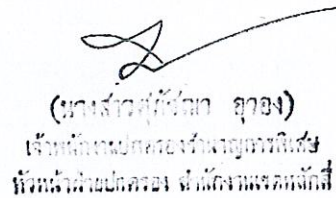 (นางสาวสุภัชฌา อุวอง)
เจ้าพนักงานปกครองชำนาญการพิเศษ
หัวหน้าฝ่ายปกครอง สำนักงานเขตหลักสี่